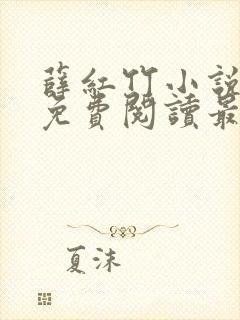 薛紅竹小說
免費閱讀最
夏沫